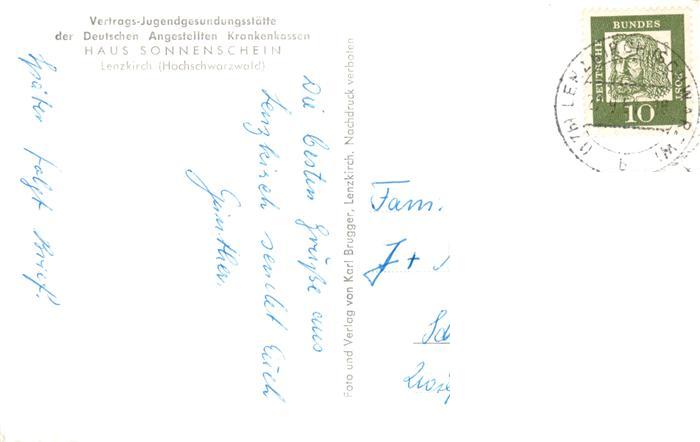 Vertrags-Jugendgesundungsstätte
der Deutschen Angestellten Krankenkassen
HAUS SONNENSCHEIN
Lenzkirch (Hochschwarzwald)
Die besten Grüße aus
Lenzkirch sendet Euch
Günther.
Später folgt Brief.
Foto und Verlag von Karl Brugger, Lenzkirch. Nachdruck verboten
Fam.
J +
DEUTSCHE
BUNDES
POST
10
LENZKIRCH